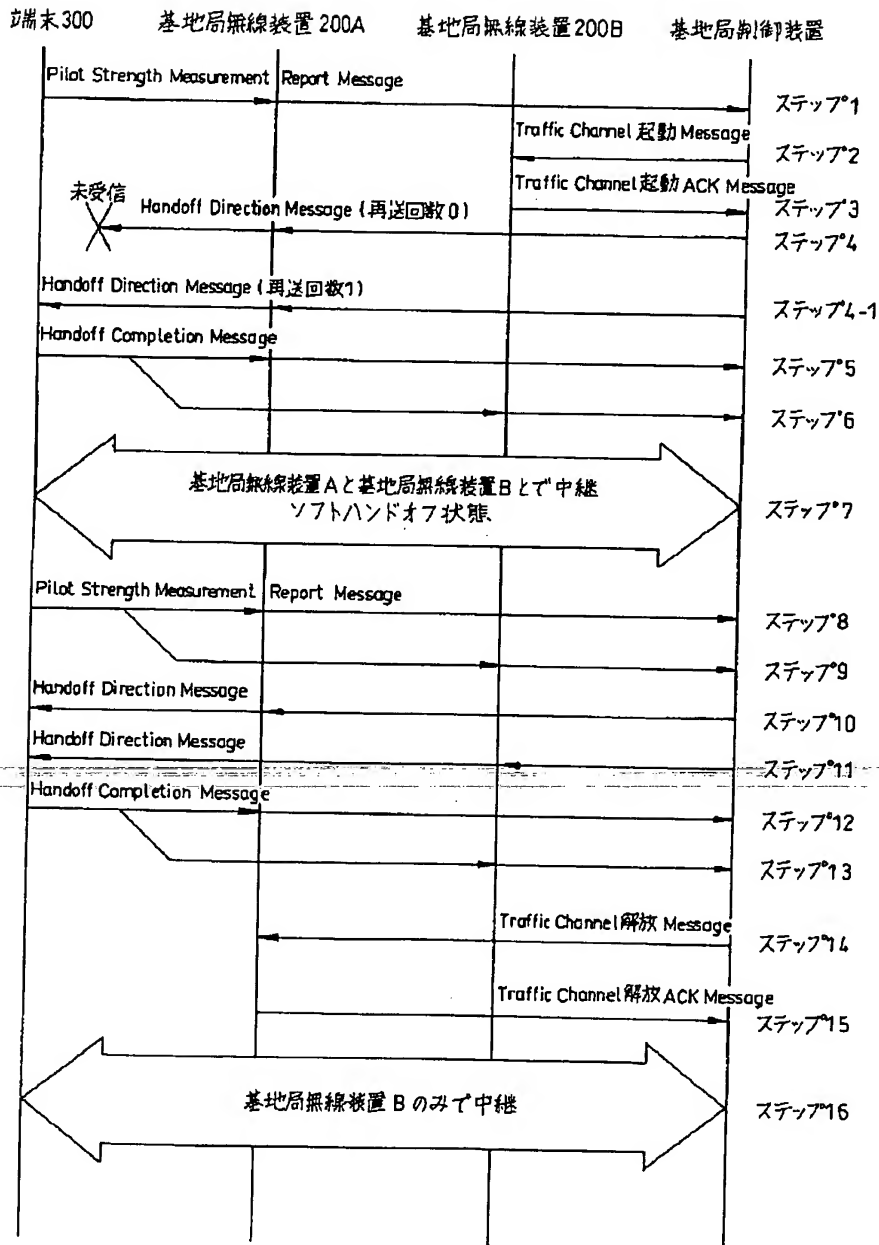 端末300 基地局無線装置200A 基地局無線装置200B 基地局制御装置
Pilot Strength Measurement Report Message
ステップ1
Traffic Channel 起動 Message
ステップ2
Traffic Channel 起動 ACK Message
ステップ3
未受信
Handoff Direction Message (再送回数0)
ステップ4
Handoff Direction Message (再送回数1)
ステップ4-1
Handoff Completion Message
ステップ5
ステップ6
基地局無線装置Aと基地局無線装置Bとで中継
ソフトハンドオフ状態
ステップ7
Pilot Strength Measurement Report Message
ステップ8
ステップ9
Handoff Direction Message
ステップ10
Handoff Direction Message
ステップ11
Handoff Completion Message
ステップ12
ステップ13
Traffic Channel 解放 Message
ステップ14
Traffic Channel 解放 ACK Message
ステップ15
基地局無線装置Bのみで中継
ステップ16